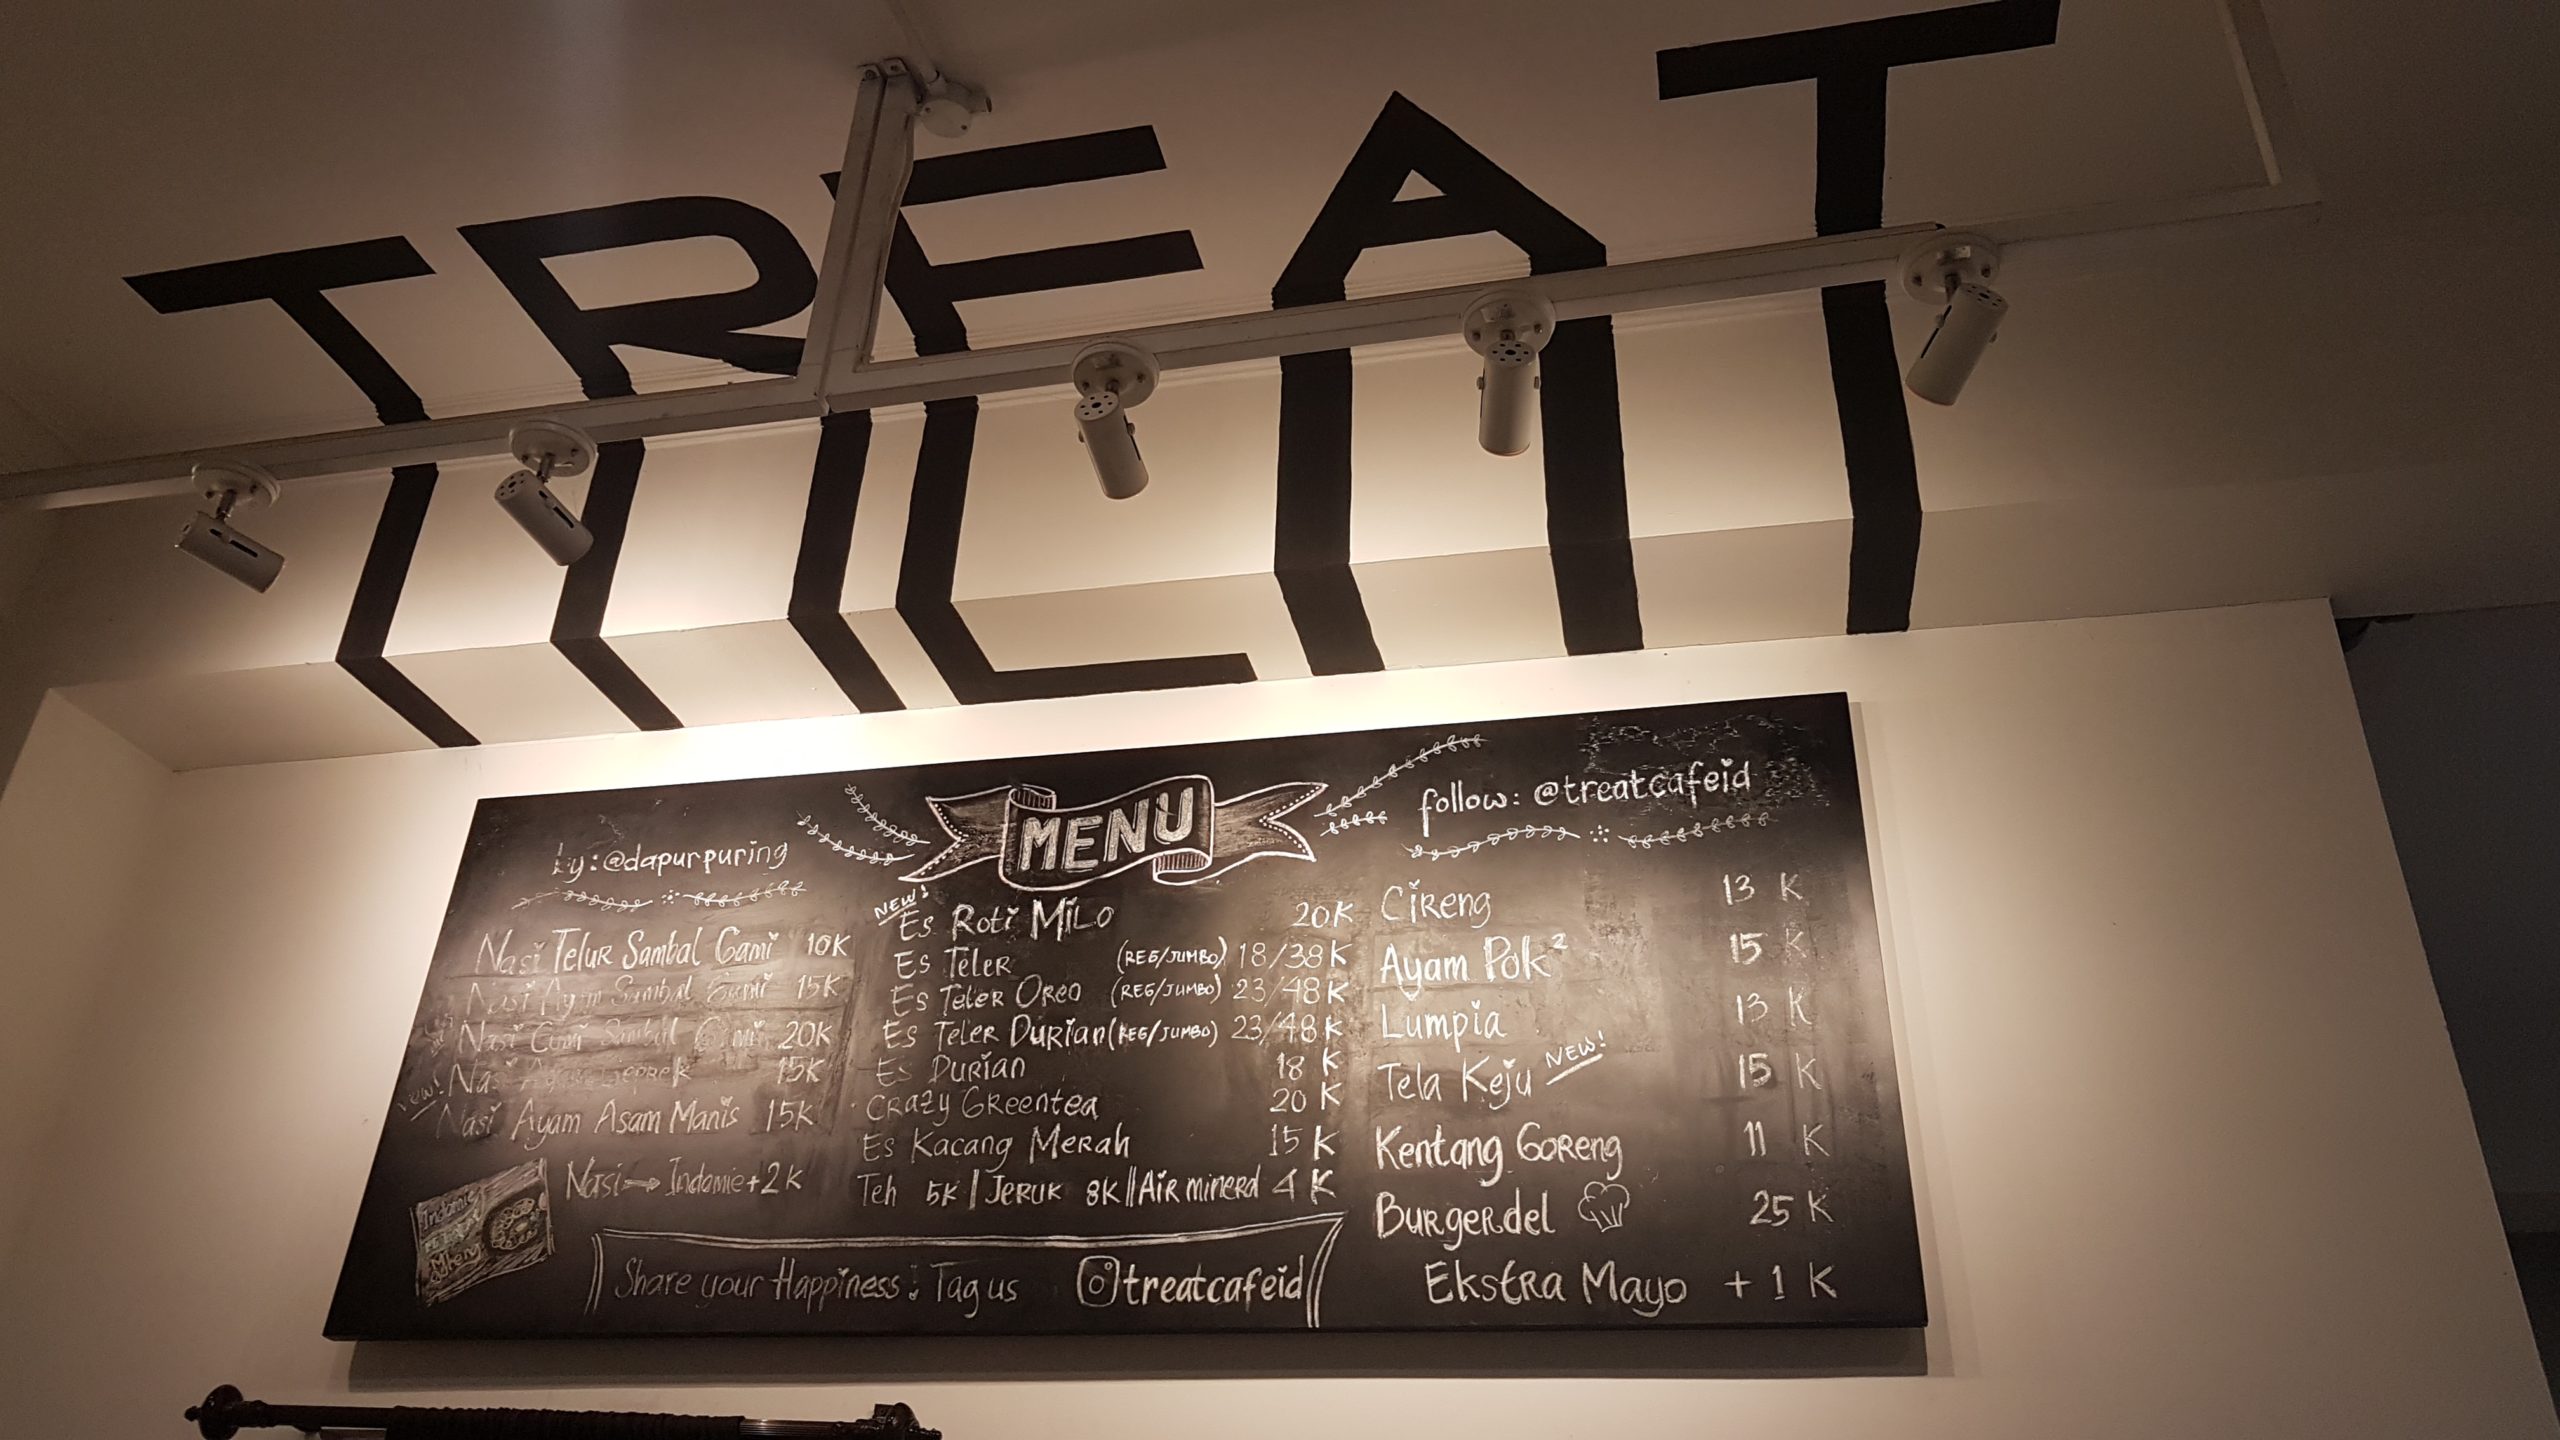 TREAT
MENU
by: @dapurpuring
Nasi Telur Sambal Gami 10K
Nasi Ayam Sambal Gami 15K
Nasi Cumi Sambal Gami 20K
Nasi Ayam Geprek 15K
New! Nasi Ayam Asam Manis 15K
Nasi → Indomie + 2K
Indomie
NEW!
Es Roti Milo 20K
Es Teler (REG/JUMBO) 18/38K
Es Teler Oreo (REG/JUMBO) 23/48K
Es Teler Durian (REG/JUMBO) 23/48K
Es Durian 18 K
Crazy Greentea 20 K
Es Kacang Merah 15 K
Teh 5K | Jeruk 8K || Air minerd 4 K
Share your Happiness! Tag us treatcafeid
follow: @treatcafeid
Cireng 13 K
Ayam Pok² 15 K
Lumpia 13 K
Tela Keju NEW! 15 K
Kentang Goreng 11 K
Burgerdel 25 K
Ekstra Mayo + 1 K